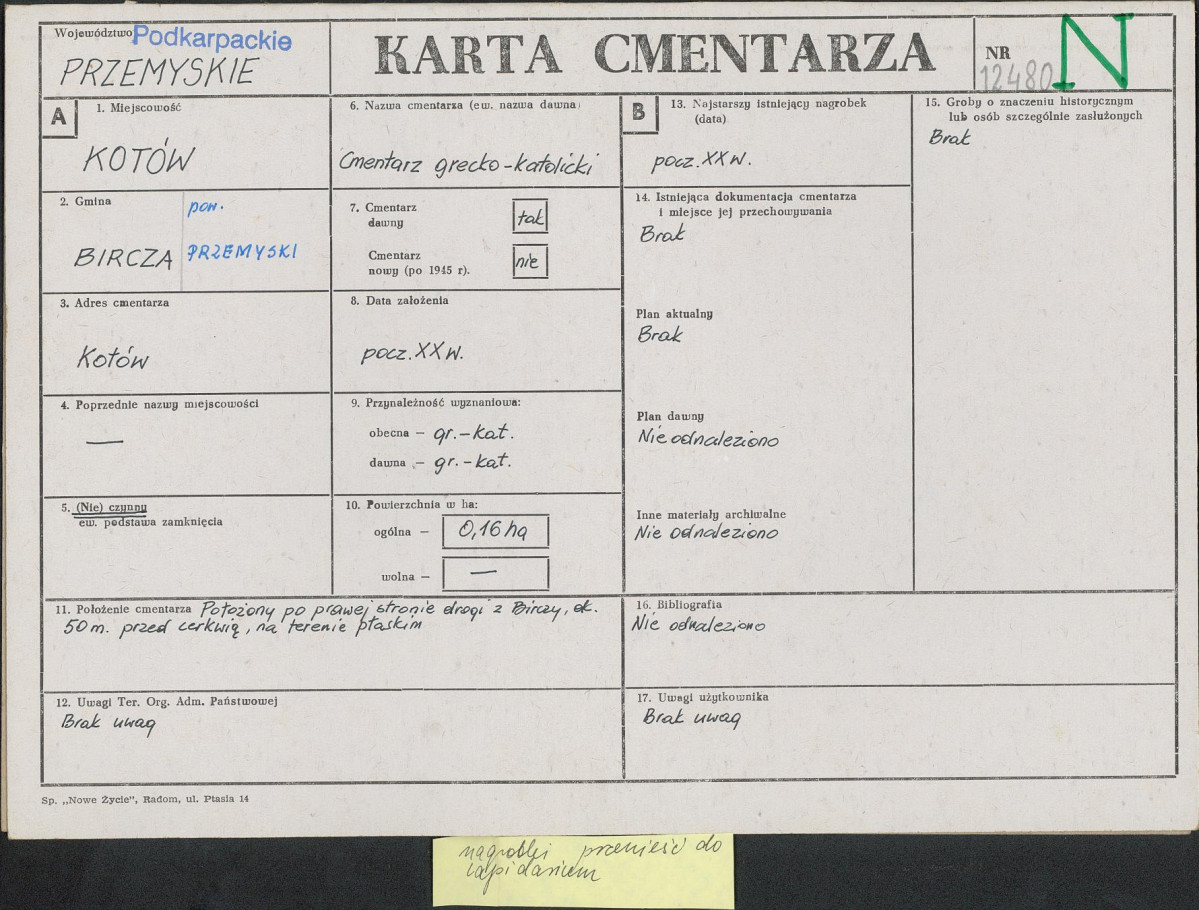 Województwo Podkarpackie
PRZEMYSKIE
KARTA CMENTARZA
NR
12480
N
A
1. Miejscowość
KOTÓW
2. Gmina
pow.
BIRCZA
PRZEMYSKI
3. Adres cmentarza
Kotów
4. Poprzednie nazwy miejscowości
—
5. (Nie) czynny
ew. podstawa zamknięcia
6. Nazwa cmentarza (ew. nazwa dawna)
Cmentarz grecko-katolicki
7. Cmentarz
dawny
tak
Cmentarz
nowy (po 1945 r).
nie
8. Data założenia
pocz. XX w.
9. Przynależność wyznaniowa:
obecna – gr.-kat.
dawna – gr.-kat.
10. Powierzchnia w ha:
ogólna – 0,16 ha
wolna – —
11. Położenie cmentarza Położony po prawej stronie drogi z Birczy, ok.
50 m. przed cerkwią, na terenie płaskim
12. Uwagi Ter. Org. Adm. Państwowej
Brak uwag
B
13. Najstarszy istniejący nagrobek
(data)
pocz. XX w.
14. Istniejąca dokumentacja cmentarza
i miejsce jej przechowywania
Brak
Plan aktualny
Brak
Plan dawny
Nie odnaleziono
Inne materiały archiwalne
Nie odnaleziono
15. Groby o znaczeniu historycznym
lub osób szczególnie zasłużonych
Brak
16. Bibliografia
Nie odnaleziono
17. Uwagi użytkownika
Brak uwag
Sp. „Nowe Życie", Radom, ul. Ptasia 14
nagrobki przenieść do
lapidarium